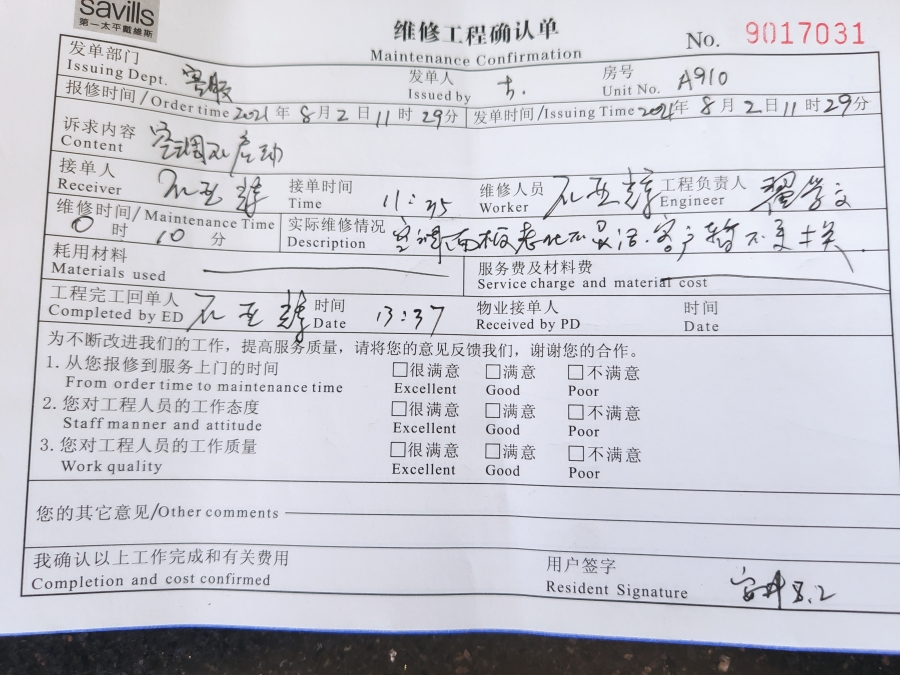 savills
第一太平戴维斯
维修工程确认单
Maintenance Confirmation
No. 9017031
发单部门 客服
Issuing Dept.
发单人
Issued by
房号 A910
Unit No.
报修时间/Order time 2021年8月2日11时29分
发单时间/Issuing Time 2021年8月2日11时29分
诉求内容 空调不启动
Content
接单人
Receiver
接单时间 11:35
Time
维修人员
Worker
工程负责人 翟学文
Engineer
维修时间/Maintenance Time
0时10分
实际维修情况 空调面板老化不灵活.客户暂不更换.
Description
耗用材料
Materials used
服务费及材料费
Service charge and material cost
工程完工回单人
Completed by ED
时间 13:37
Date
物业接单人
Received by PD
时间
Date
为不断改进我们的工作，提高服务质量，请将您的意见反馈我们，谢谢您的合作。
1.从您报修到服务上门的时间 □很满意 □满意 □不满意
From order time to maintenance time Excellent Good Poor
2.您对工程人员的工作态度 □很满意 □满意 □不满意
Staff manner and attitude Excellent Good Poor
3.您对工程人员的工作质量 □很满意 □满意 □不满意
Work quality Excellent Good Poor
您的其它意见/Other comments
我确认以上工作完成和有关费用
Completion and cost confirmed
用户签字
Resident Signature 8.2